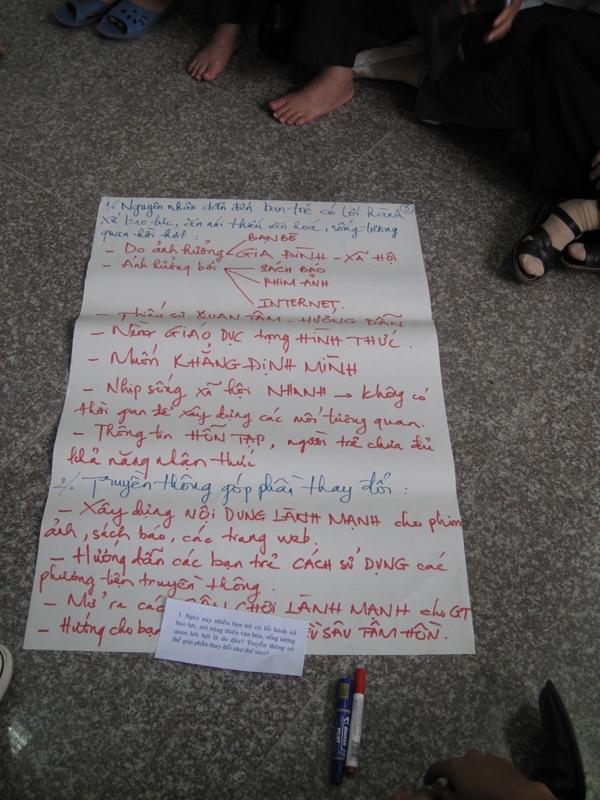 1/. Nguyên nhân dẫn đến bạn trẻ có lối hành
xử bạo lực, ăn nói thiếu văn hoá, sống tương
quan hời hợt:
BẠN BÈ
- Do ảnh hưởng GIA ĐÌNH - XÃ HỘI
- Ảnh hưởng bởi SÁCH BÁO
PHIM ẢNH
INTERNET.
- Thiếu sự QUAN TÂM - HƯỚNG DẪN
- Nền GIÁO DỤC trọng HÌNH THỨC.
- Muốn KHẲNG ĐỊNH MÌNH
- Nhịp sống xã hội NHANH → không có
thời gian để xây dựng các mối tương quan.
- Thông tin HỖN TẠP, người trẻ chưa đủ
khả năng nhận thức
2/. Truyền thông góp phần thay đổi:
- Xây dựng NỘI DUNG LÀNH MẠNH cho phim
ảnh, sách báo, các trang web.
- Hướng dẫn các bạn trẻ CÁCH SỬ DỤNG các
phương tiện truyền thông.
- Mở ra các SÂN CHƠI LÀNH MẠNH cho GT
- Hướng cho bạn SÂU TÂM HỒN.
3. Ngày nay nhiều bạn trẻ có lối hành xử
bạo lực, nói năng thiếu văn hóa, sống tương
quan hời hợt là do đâu? Truyền thông có
thể góp phần thay đổi như thế nào?